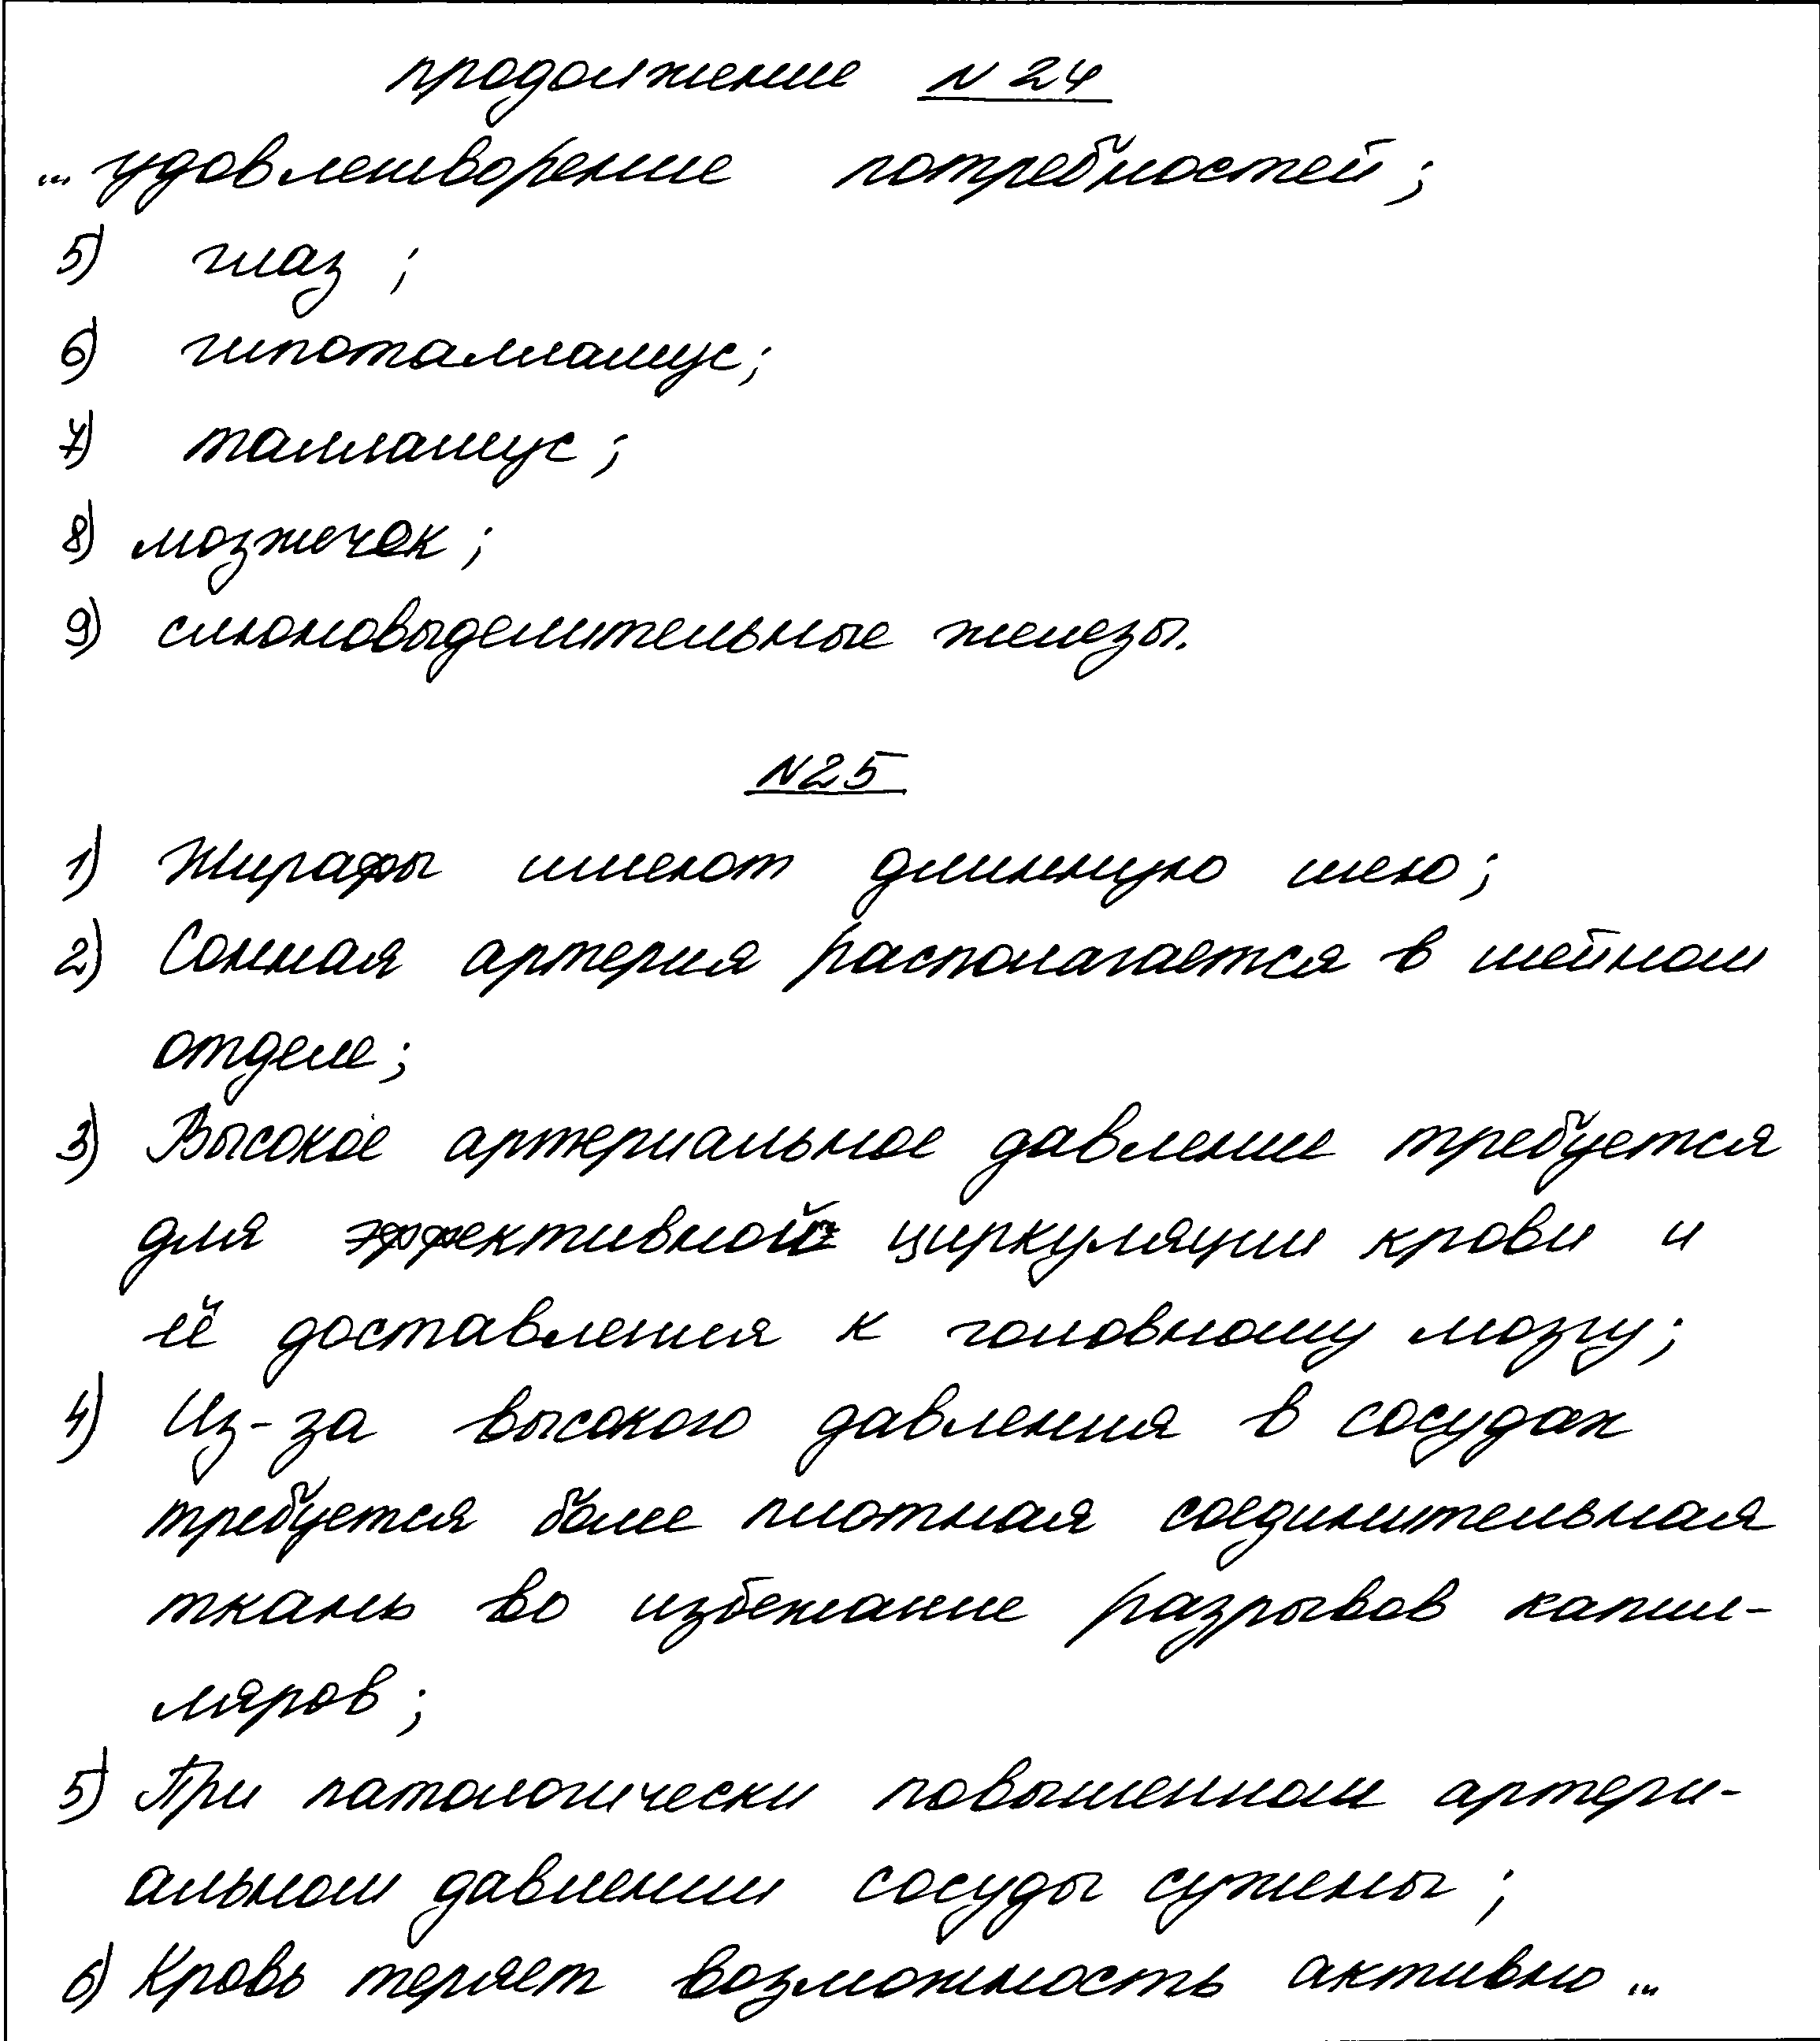 продолжение N 24
... удовлетворение потребностей;
5) глаз;
6) гипоталламус;
7) талламус;
8) мозжечок;
9) слюновыделительные железы.
N25
1) Жирафы имеют длинную шею;
2) Сонная артерия располагается в шейном
отделе;
3) Высокое артериальное давление требуется
для эффективной циркуляции крови и
её доставления к головному мозгу;
4) Из-за высокого давления в сосудах
требуется более плотная соединительная
ткань во избежание разрывов капил-
ляров;
5) При патологически повышенном артери-
альном давлении сосуды сужены;
6) Кровь теряет возможность активно ...